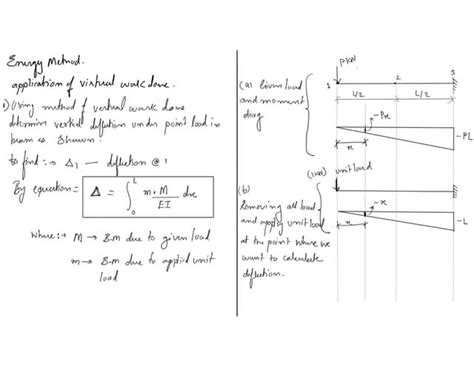 Energy Method.
application of virtual work done.
1) Using method of virtual work done
determine vertical deflection under point load in
beam as shown.
to find :→ Δ₁ — deflection @ 1
By equation = Δ = ∫₀ᴸ m·M/EI dx
where :→ M → B.M due to given load
m → B.M due to applied unit
load
(a) Given load
and moment
diag
P KN
1
2
3
L/2
L/2
-Px
-PL
x
(1 KN) unit load
(b)
Removing all load
and apply unit load
at the point where we
want to calculate
deflection.
-x
-L
x